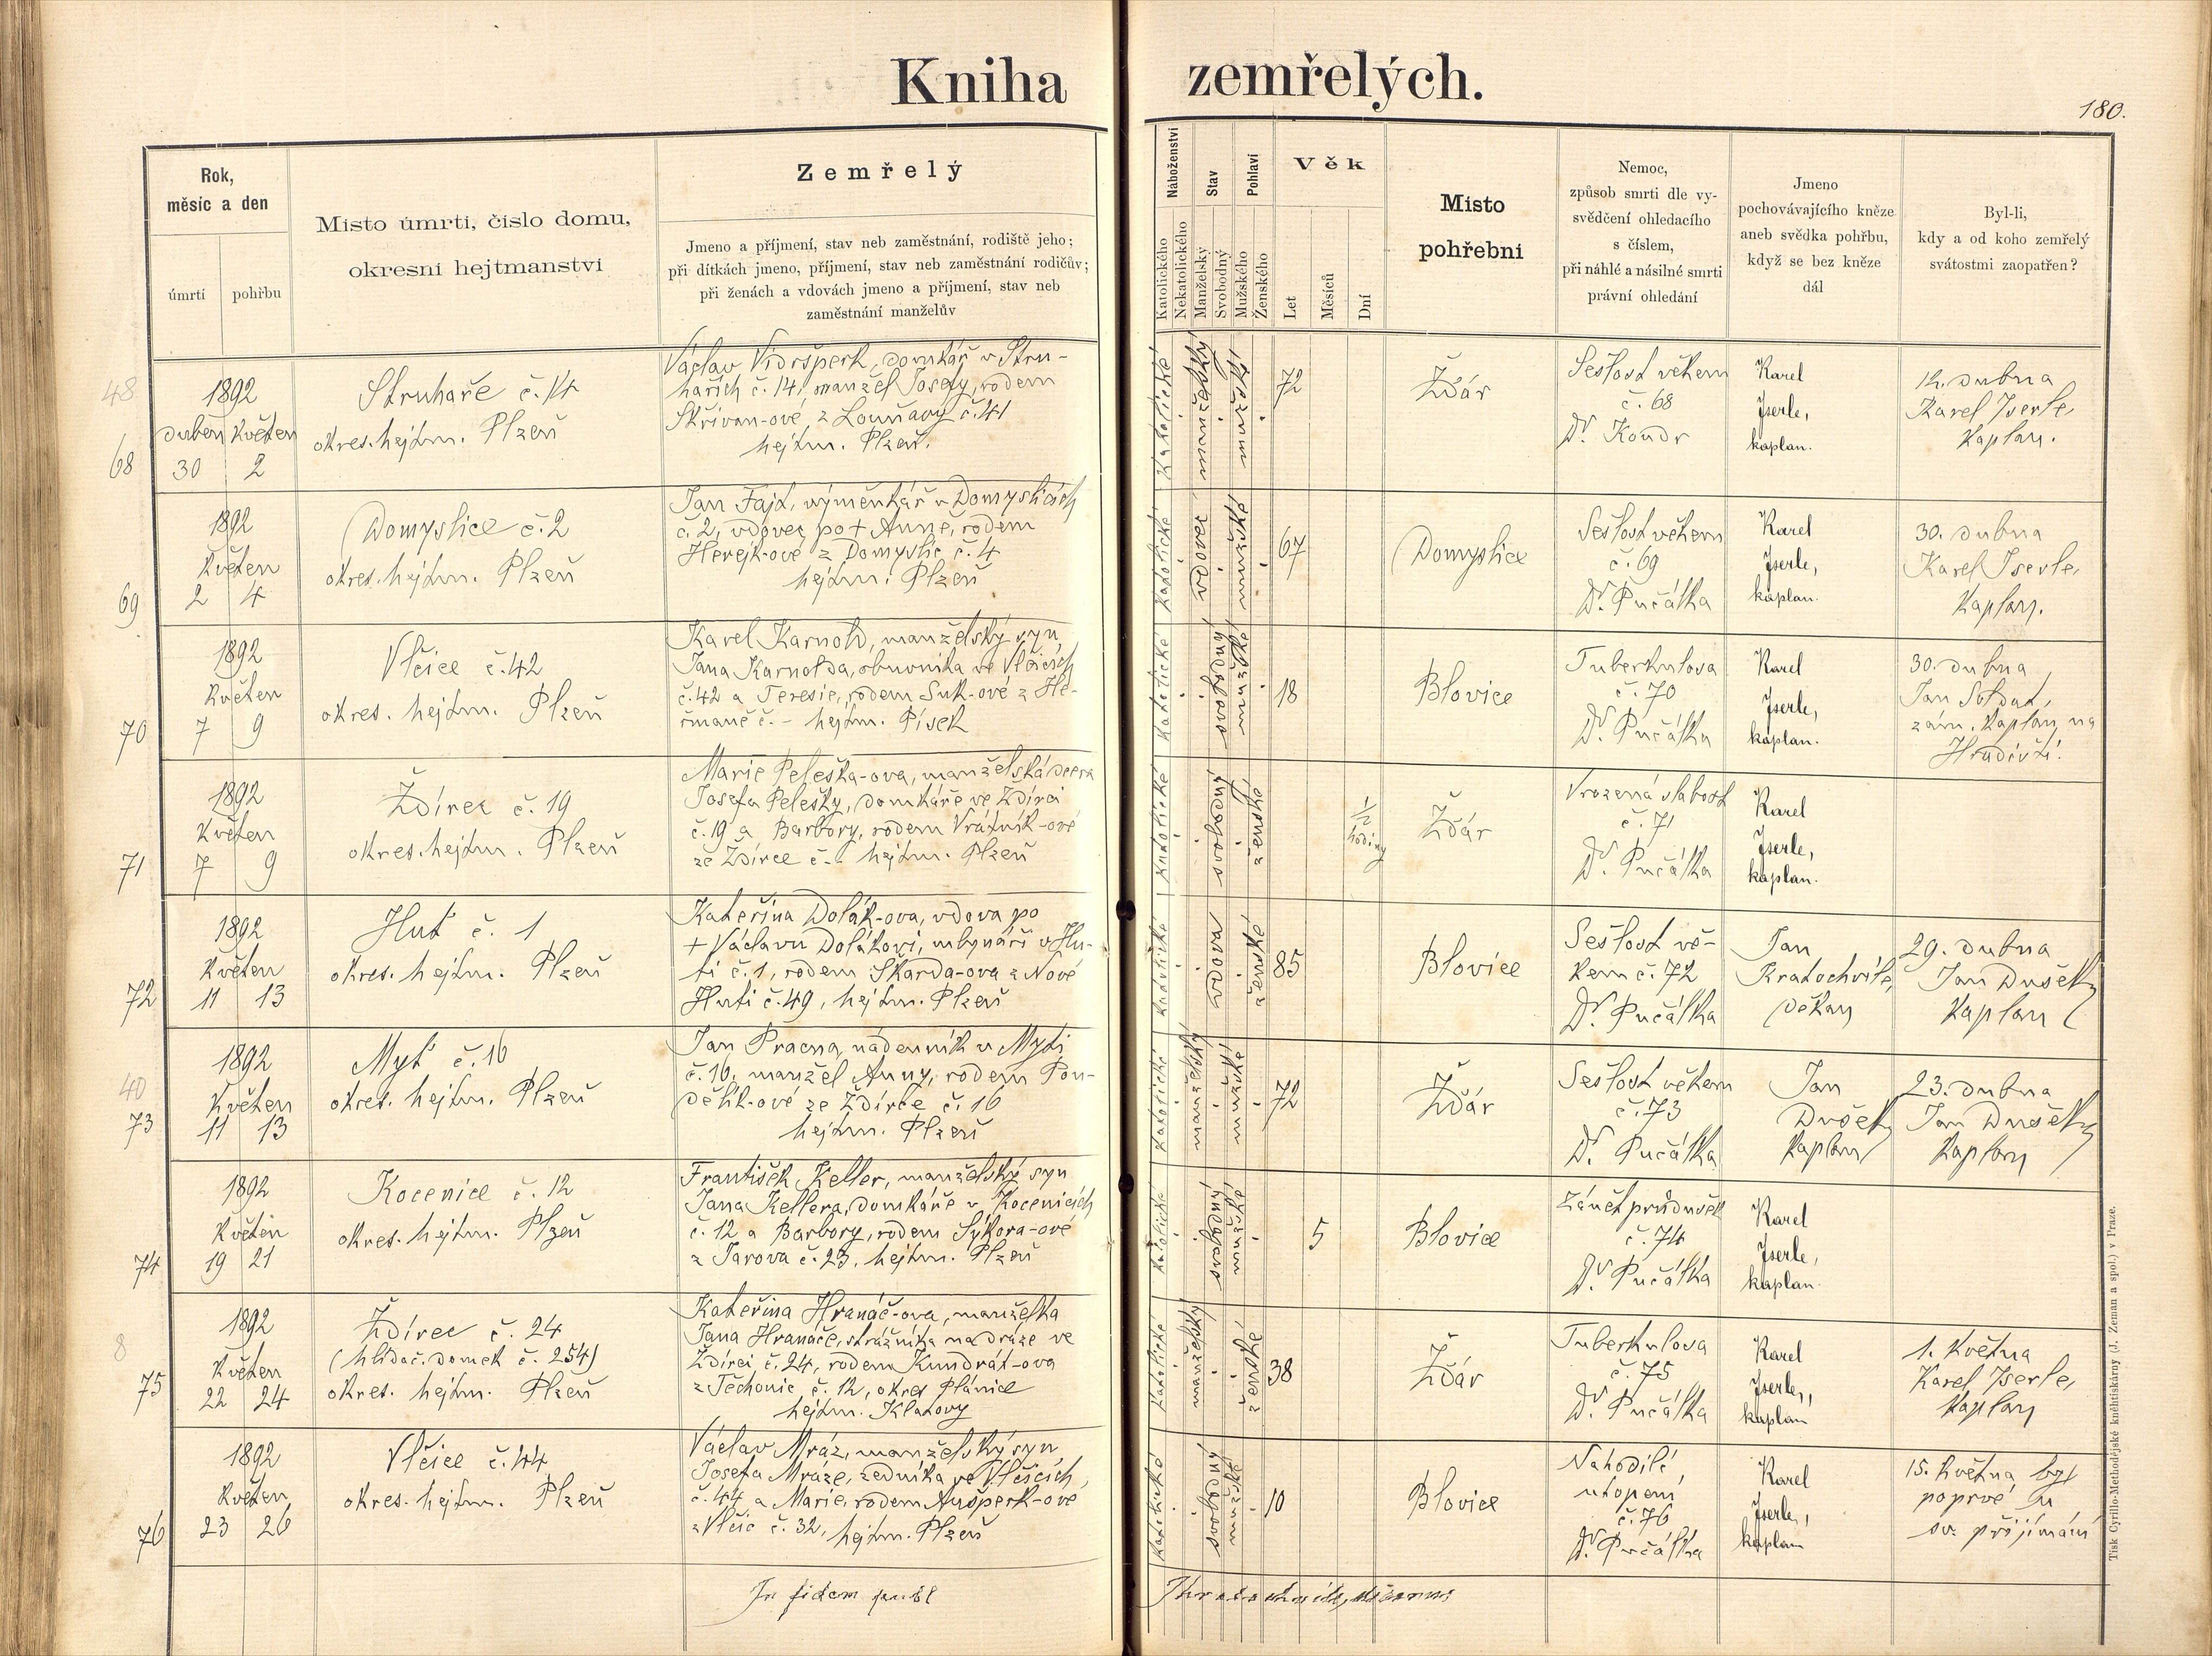 Kniha zemřelých.
180.
Rok,
měsíc a den
úmrtí
pohřbu
Místo úmrtí, číslo domu,
okresní hejtmanství
Zemřelý
Jmeno a příjmení, stav neb zaměstnání, rodiště jeho;
při dítkách jmeno, příjmení, stav neb zaměstnání rodičův;
při ženách a vdovách jmeno a příjmení, stav neb
zaměstnání manželův
Náboženství
Katolického
Nekatolického
Stav
Manželský
Svobodný
Pohlaví
Mužského
Ženského
Věk
Let
Měsíců
Dní
Místo
pohřební
Nemoc,
způsob smrti dle vy-
svědčení ohledacího
s číslem,
při náhlé a násilné smrti
právní ohledání
Jmeno
pochovávajícího kněze
aneb svědka pohřbu,
když se bez kněze
dál
Byl-li,
kdy a od koho zemřelý
svátostmi zaopatřen?
48
68
1892
duben květen
30 2
Struhaře č. 14
okres. hejtm. Plzeň
Václav Vidršperk, domkář v Stru-
hařích č. 14, manžel Josefy, rodem
Skřivan-ové z Louňavy č. 41
hejtm. Plzeň.
katolické
manželský
mužské
72
Žďár
Sešlost věkem
č. 68
Dr. Koudr
Karel
Jserle,
kaplan.
12. dubna
Karel Jserle,
kaplan.
69
1892
květen
2 4
Domyslice č. 2
okres. hejtm. Plzeň
Jan Fajt, výměnkář v Domyslicích
č. 2, vdovec po + Anně, rodem
Herejk-ové z Domyslic č. 4
hejtm. Plzeň
katolické
vdovec
mužské
67
Domyslice
Sešlost věkem
č. 69
Dr. Pučálka
Karel
Jserle,
kaplan.
30. dubna
Karel Jserle,
kaplan.
70
1892
květen
7 9
Vlčice č. 42
okres. hejtm. Plzeň
Karel Karnold, manželský syn
Jana Karnolda, obuvníka ve Vlčicích
č. 42 a Teresie, rodem Suk-ové z He-
řmaně č. - hejtm. Písek
katolické
svobodný
mužské
18
Blovice
Tuberkulosa
č. 70
Dr. Pučálka
Karel
Jserle,
kaplan.
30. dubna
Jan Soldat,
zám. kaplan na
Hradišti.
71
1892
květen
7 9
Ždírec č. 19
okres. hejtm. Plzeň
Marie Peleška-ova, manželská dcera
Josefa Pelešky, domkáře ve Ždírci
č. 19 a Barbory, rodem Vrátník-ové
ze Ždírce č. - hejtm. Plzeň
katolické
svobodný
ženské
1/2
hodiny
Žďár
Vrozená slabost
č. 71
Dr. Pučálka
Karel
Jserle,
kaplan.
72
1892
květen
11 13
Huť č. 1
okres. hejtm. Plzeň
Kateřina Dolák-ova, vdova po
+ Václavu Dolákovi, mlynáři v Hu-
ti č. 1, rodem Škarda-ova z Nové
Huti č. 49, hejtm. Plzeň
katolické
vdova
ženské
85
Blovice
Sešlost vě-
kem č. 72
Dr. Pučálka
Jan
Kratochvíle,
děkan
29. dubna
Jan Dušek
kaplan
40
73
1892
květen
11 13
Myť č. 16
okres. hejtm. Plzeň
Jan Pracna, nádenník v Myti
č. 16, manžel Anny, rodem Pon-
dělík-ové ze Ždírce č. 16
hejtm. Plzeň
katolické
manželský
mužské
72
Žďár
Sešlost věkem
č. 73
Dr. Pučálka
Jan
Dušek
kaplan
23. dubna
Jan Dušek
kaplan
74
1892
květen
19 21
Kocenice č. 12
okres. hejtm. Plzeň
František Keller, manželský syn
Jana Kellera, domkáře v Kocenicích
č. 12 a Barbory, rodem Sýkora-ové
z Jarova č. 23, hejtm. Plzeň
katolické
svobodný
mužské
5
Blovice
Zánět průdušek
č. 74
Dr. Pučálka
Karel
Jserle,
kaplan.
8
75
1892
květen
22 24
Ždírec č. 24
(hlídač. domek č. 254)
okres. hejtm. Plzeň
Kateřina Hranáč-ova, manželka
Jana Hranáče, strážníka na dráze ve
Ždírci č. 24, rodem Kundrát-ova
z Těchonic č. 12, okres Plánice
hejtm. Klatovy
katolické
manželský
ženské
38
Žďár
Tuberkulosa
č. 75
Dr. Pučálka
Karel
Jserle,
kaplan
1. května
Karel Jserle,
kaplan
76
1892
květen
23 26
Vlčice č. 44
okres. hejtm. Plzeň
Václav Mráz, manželský syn
Josefa Mráze, zedníka ve Vlčicích,
č. 44 a Marie, rodem Aušperk-ové
z Vlčic č. 32, hejtm. Plzeň
katolické
svobodný
mužské
10
Blovice
Náhodilé
utopení
č. 76
Dr. Pučálka
Karel
Jserle,
kaplan
15. května byl
poprvé u
sv. přijímání
In fidem
Tisk Cyrillo-Methodějské knihtiskárny (J. Zeman a spol.) v Praze.